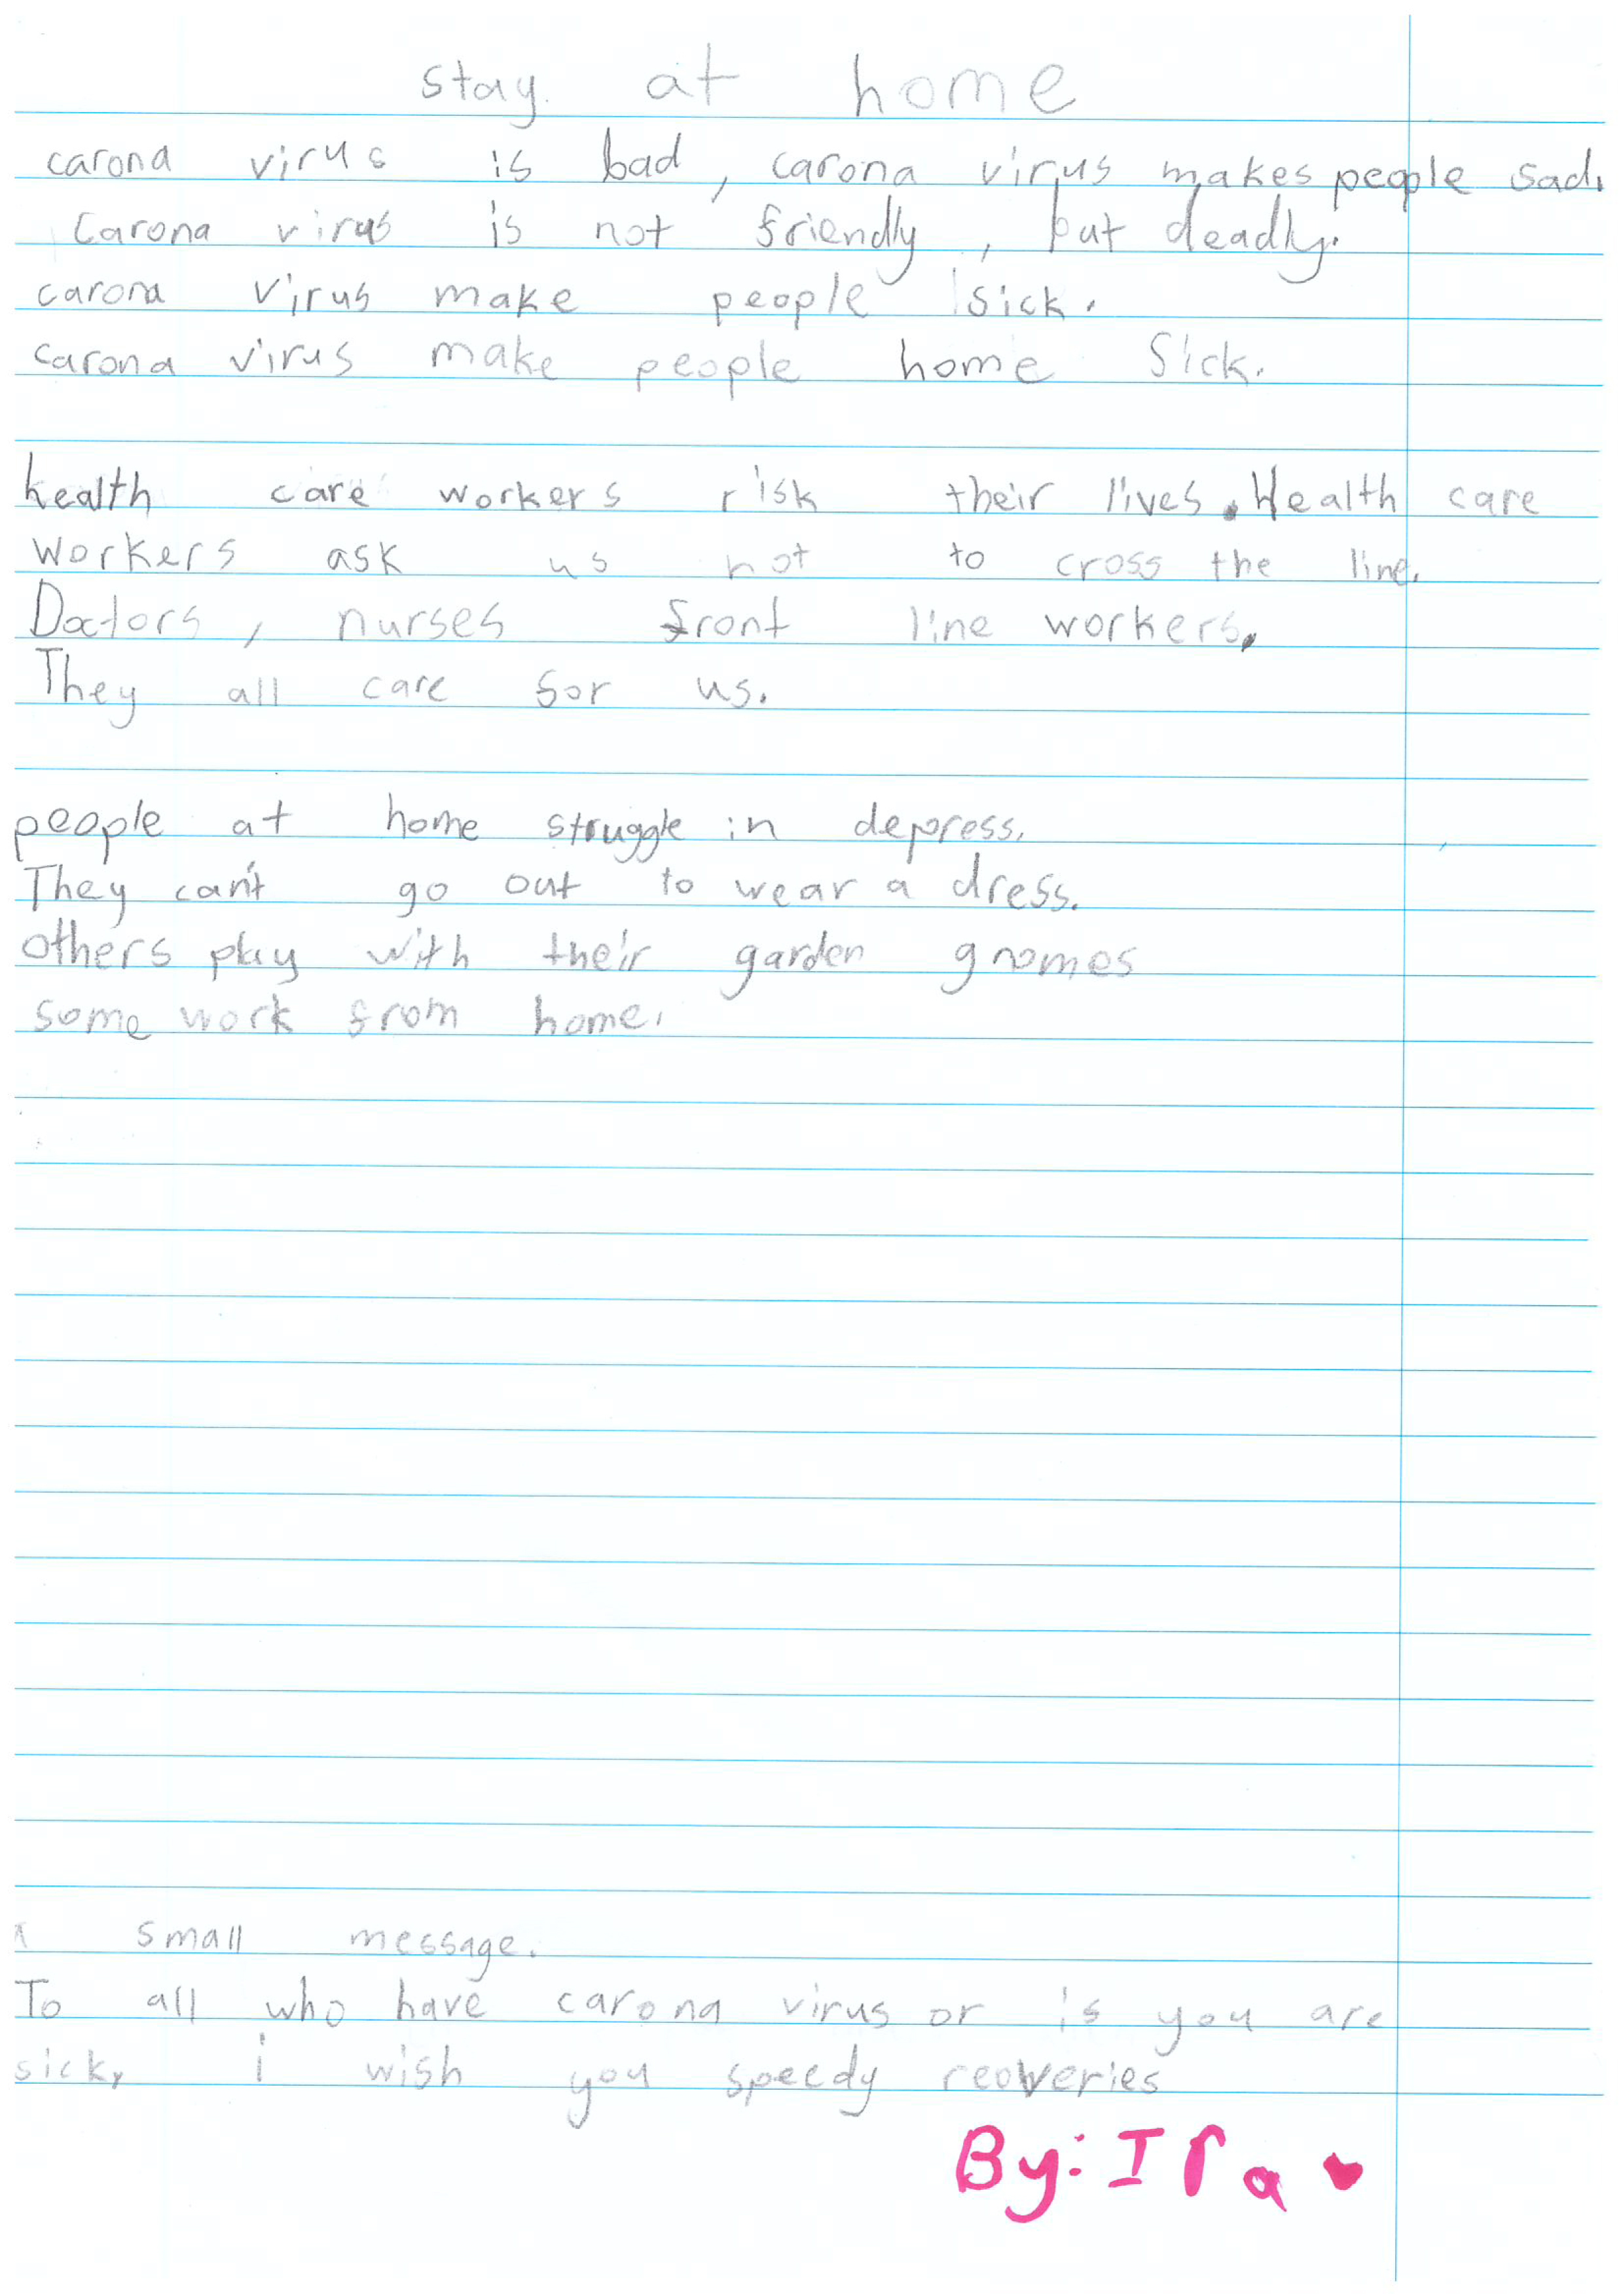 stay at home
carona virus is bad, carona virus makes people sad.
Carona virus is not friendly, but deadly.
carona virus make people sick.
carona virus make people home sick.
health care workers risk their lives. Health care
workers ask us not to cross the line.
Doctors, nurses front line workers.
They all care for us.
people at home struggle in depress.
They can't go out to wear a dress.
others play with their garden gnomes
some work from home.
A small message.
To all who have carona virus or if you are
sick, i wish you speedy recoveries
By: Ira